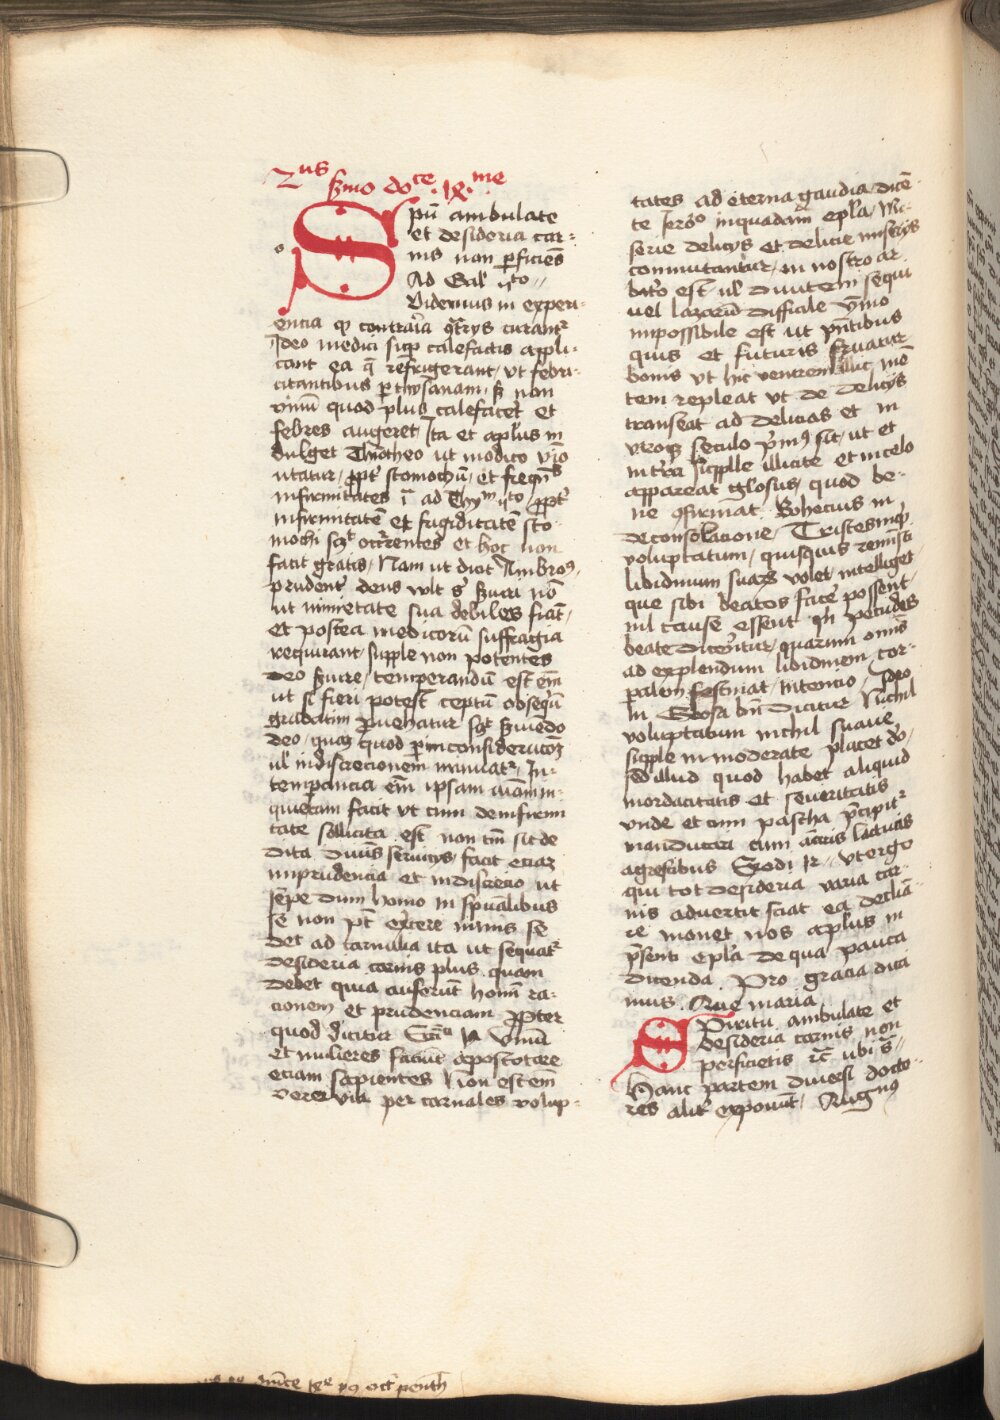 2us
smo doce lxme
Spū ambulate
et desideria car-
nis non perficies
Ad Gal' vto
Videmus in experi-
encia quod contraria contrarijs curantr
Ideo medici super calefactis appli-
cant ea que refrigerant, ut febri-
citantibus per thysanam, sed non
vinum quod plus calefaceret et
febres augeret, Ita et aplus in
dulget Thimotheo ut modico vino
utatur propter stomachū et frequētes
infirmitates i ad Thym vto propter
infirmitatē et frigiditatē sto-
mochi sibi occurrentes et hoc non
facit gratis, Nam ut dicit Ambros
prudenter deus vult sibi servire non
ut nimietate sua debiles fiant
et postea medicorū suffragia
requirant, supple non potentes
deo servire, temperandū est em
ut si fieri potest ceptū obsequiū
gradatim provehatur
deo
ul' indiscrecionem minuatr, In-
temperancia em ipsam
quietam facit ut cum de infirmi
tate sollicita est non tm sit de
dita divinis servicijs, facit eciam
imprudencia et indiscrecio ut
sepe dum homo in spualibus
se non pt exercere nimis se
det ad carnalia ita ut sequatr
desideria carnis plus quam
debet quia auferunt homini ra-
cionem et prudenciam Propter
quod dicitur Ecci 19 Vinū
et mulieres faciūt apostotare
eciam sapientes Non est em
verer via per carnales volup-
tates ad eterna gaudia, dicē-
te Jero in quadam epla, Mi-
serie delicijs et delicie miserijs
commutantur, in nostro ar
bitro est ul' divitem sequi
vel lazarū difficile ymo
impossibile est ut pntibus
quis et futuris fruatur
bonis ut hic ventrem illic mē
tem repleat ut de delicijs
transeat ad delicias et in
utroque seculo primus sit, ut et
in terra supple illicite et in celo
appareat gl'osus, quod be-
ne confirmat Bohecius in
de consolacione, Tristes
voluptatum, quisquis reminisci
libidinum suarum volet, intelliget
que sibi beatos facere possent,
nil cause essent quin pecudes
beate dicerentur, quarum omnis
ad explendum libidinem cor-
palem festinat, intencio, Ideo
in Glosa bn dicitur Nichil
voluptatum nichil suave
supple immoderate placet deo,
sed illud quod habet aliquid
mordacitatis et severitatis
unde et cum pascha precipitr
manducari cum amaris lactucis
agrestibus Exodi 12, ut ergo
qui tot desideria varia car-
nis advertit sciat ea declia-
re monet nos aplus in
psenti epla de qua pauca
dicenda Pro gracia dica
mus Ave maria
Spiritu ambulate et
desideria carnis non
perficietis rc ubi s
Hanc partem diversi docto-
res alitr exponūt, Augus